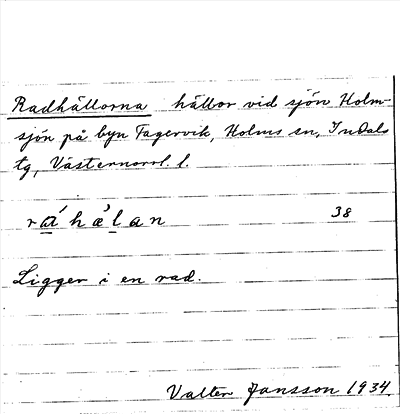 Radhällorna hällor vid sjön Holm-
sjön på byn Fagervik, Holms sn, Indals
tg, Västernorrl. l.
38
Ligger i en rad.
Valter Jansson 1934.